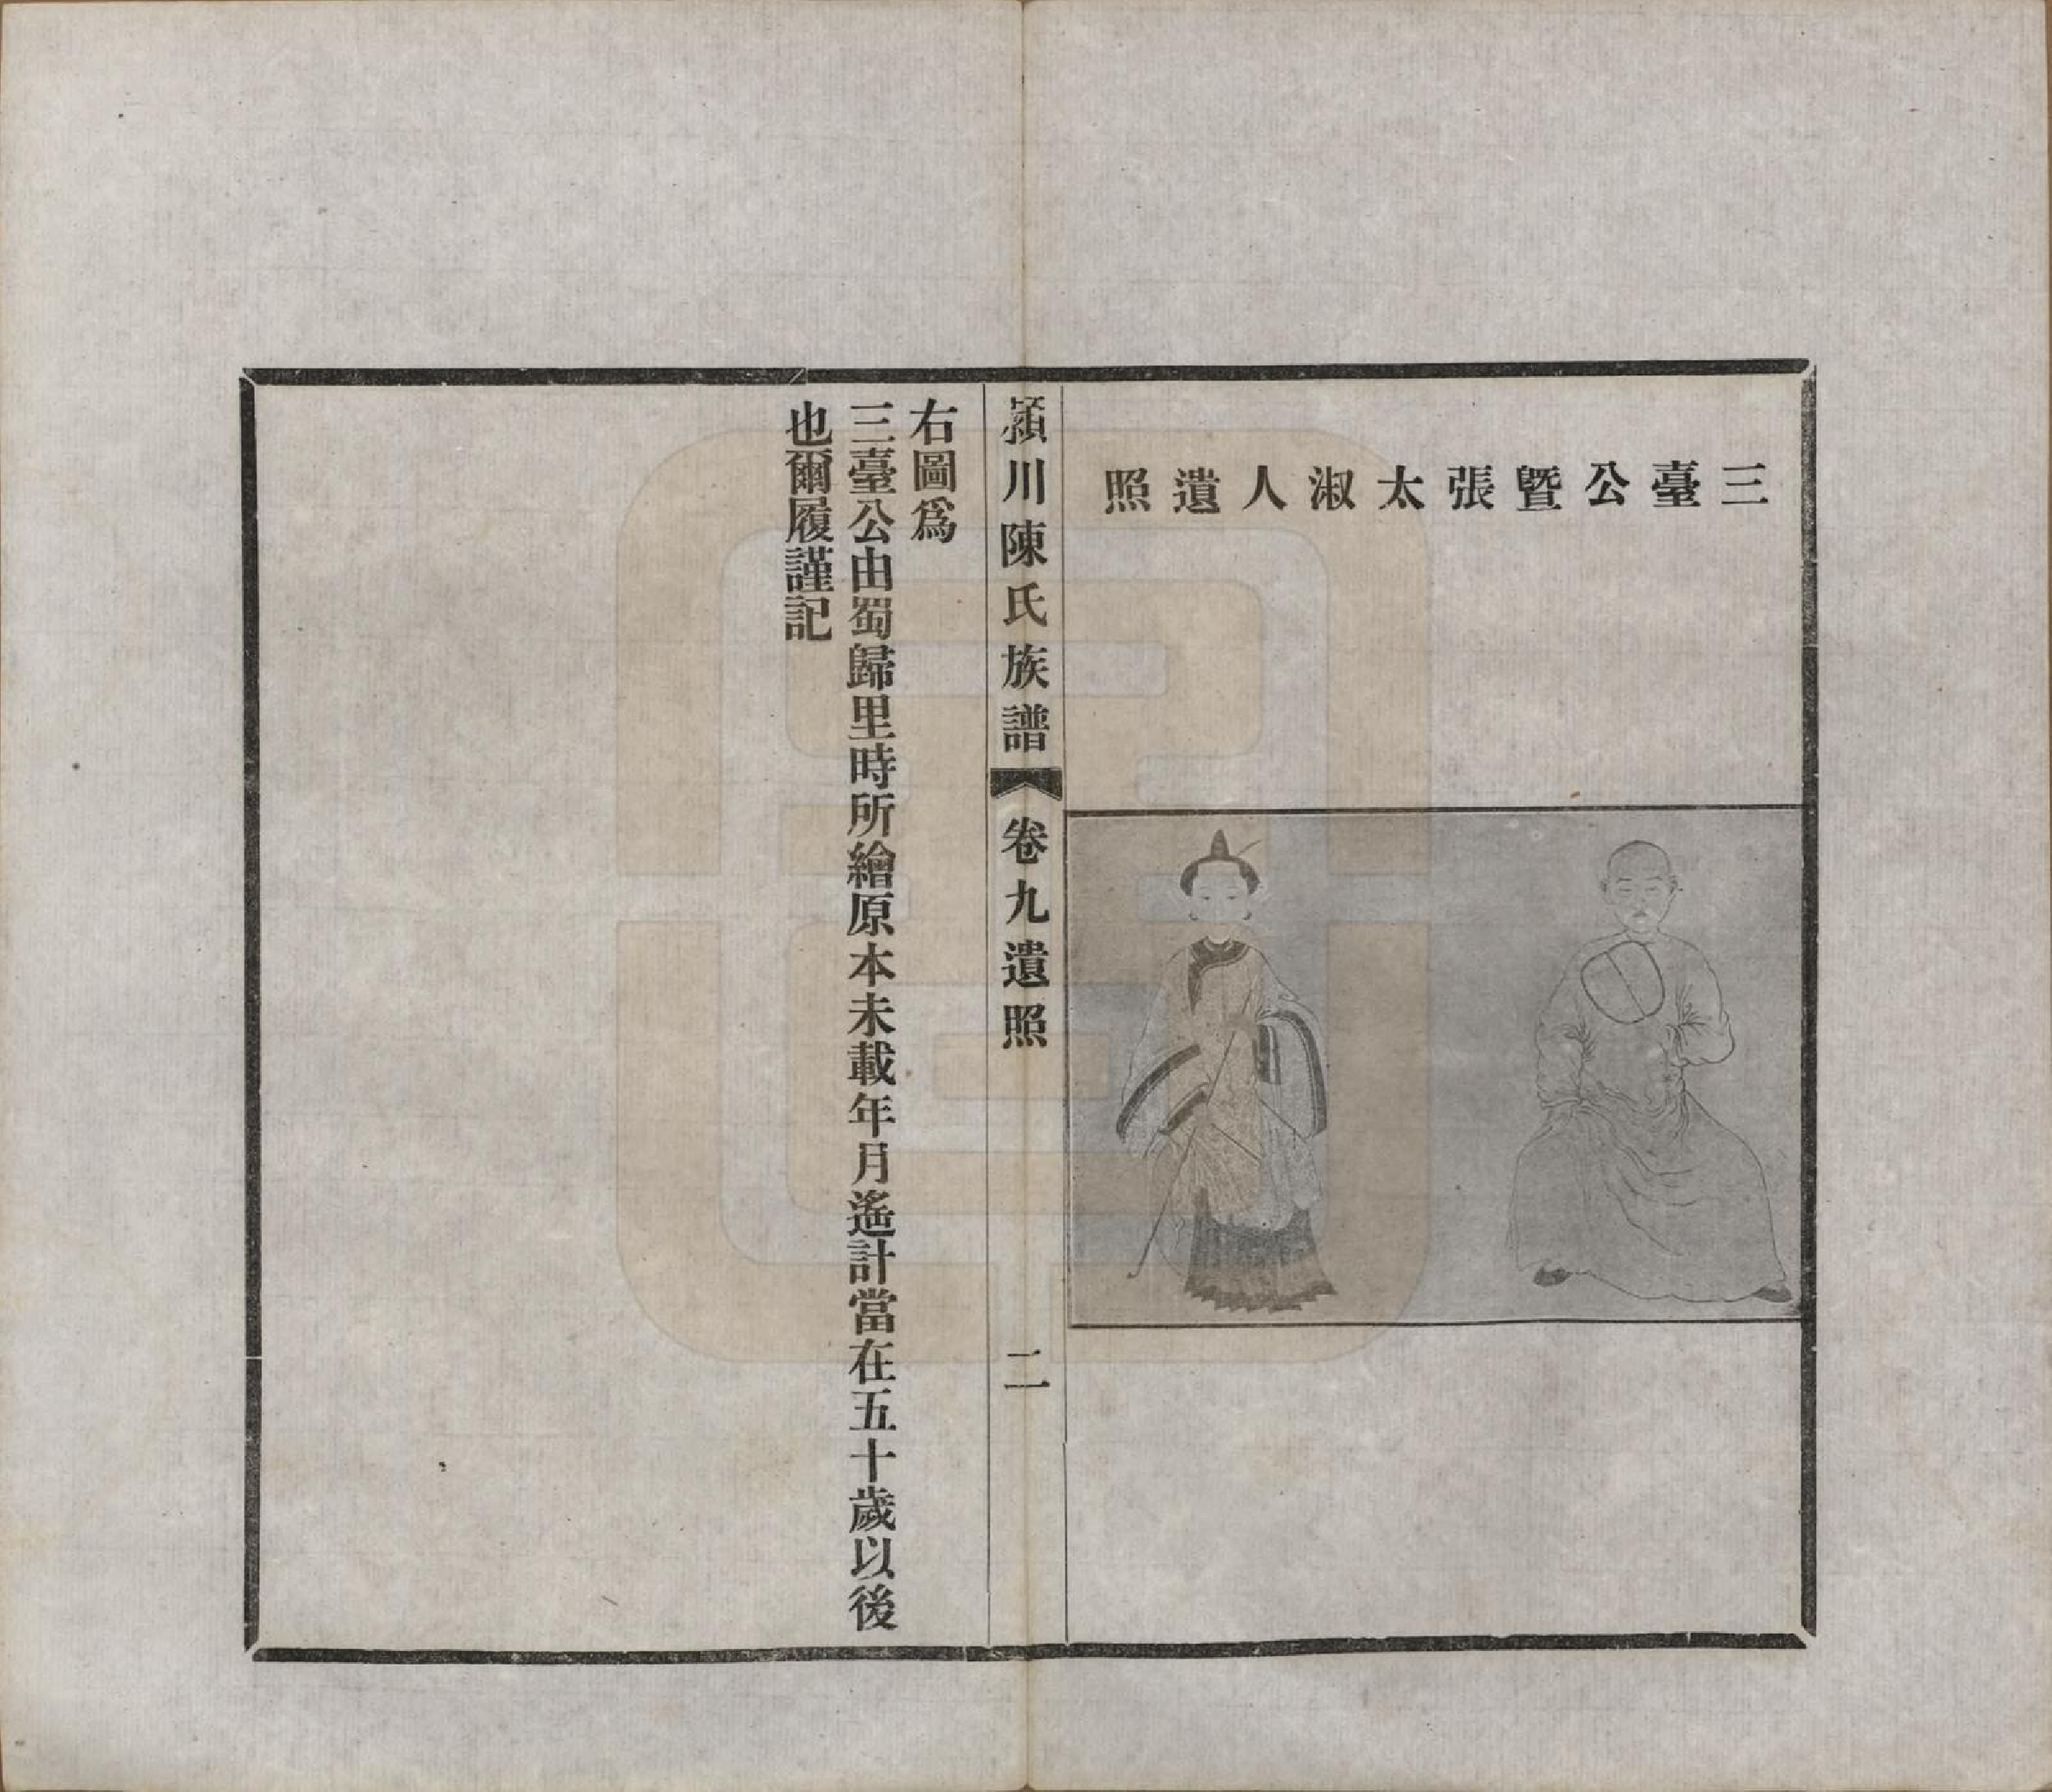 三臺公暨張太淑人遺照
潁川陳氏族譜 卷九遺照 二
右圖爲
三臺公由蜀歸里時所繪原本未載年月遙計當在五十歲以後
也爾履謹記